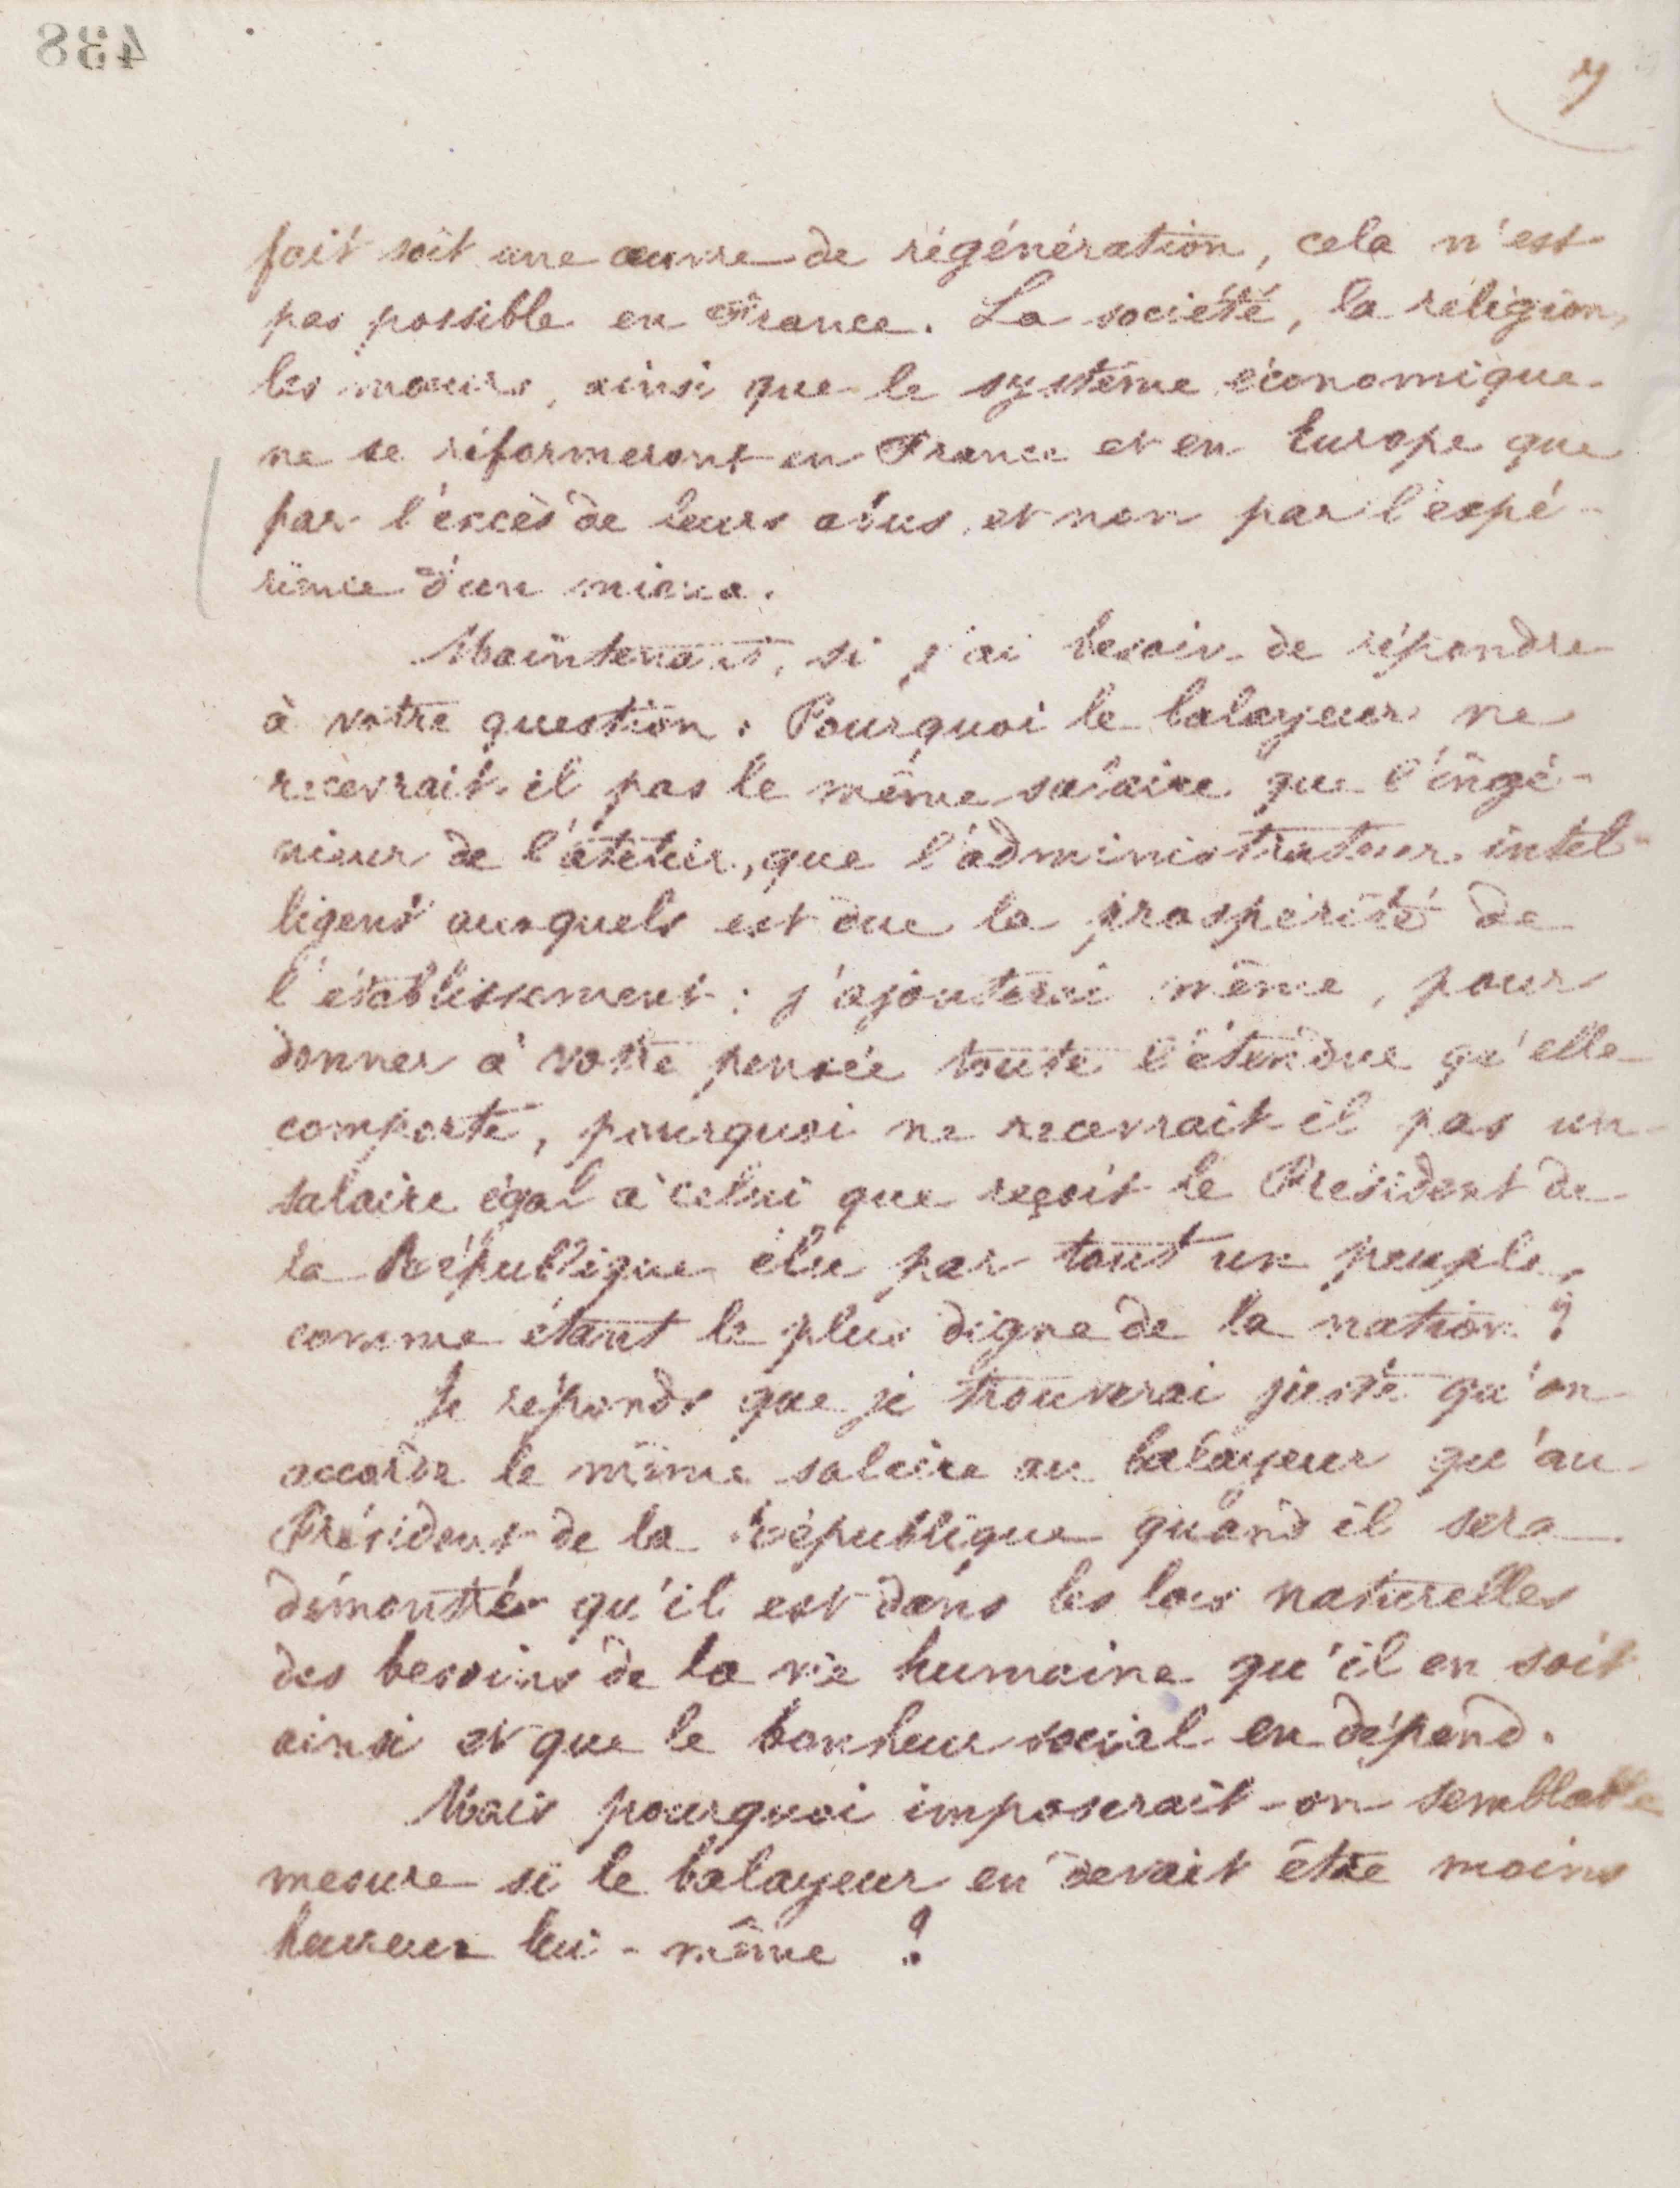 438
7
fait soit une œuvre de régénération, cela n'est
pas possible en France. La société, la religion,
les mœurs, ainsi que le système économique
ne se réformeront en France et en Europe que
par l'excès de leurs abus et non par l'expé-
rience d'un
Maintenant, si j'ai besoin de répondre
à votre question : Pourquoi le balayeur ne
recevrait-il pas le même salaire que l'ingé-
nieur de l'atelier, que l'administrateur intel-
ligent auxquels est due la prospérité de
l'établissement ; j'ajouterai même, pour
donner à votre pensée toute l'étendue qu'elle
comporte, pourquoi ne recevrait-il pas un
salaire égal à celui que reçoit le Président de
la République élu par tout un peuple,
comme étant le plus digne de la nation ?
Je réponds que je trouverai juste qu'on
accorde le même salaire au balayeur qu'au
Président de la République quand il sera
démontré qu'il est dans les lois naturelles
des besoins de la vie humaine qu'il en soit
ainsi et que le bonheur social en dépend.
Mais pourquoi imposerait-on semblable
mesure si le balayeur en devait être moins
heureux lui-même ?